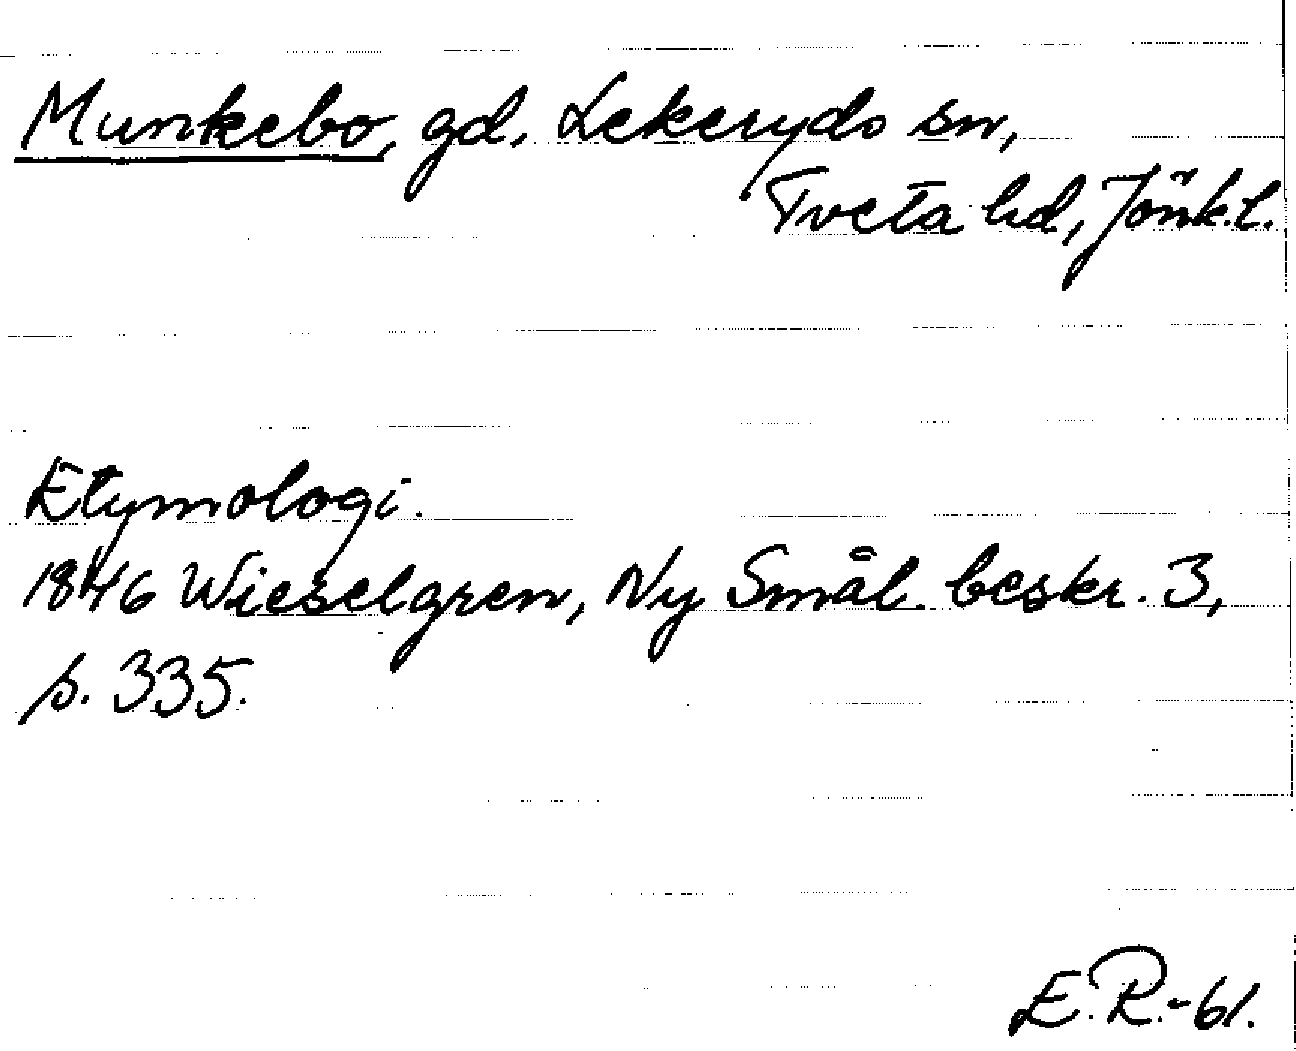 Munkebo, gd, Lekeryds sn,
Tveta hd, Jönk.l.
Etymologi.
1846 Wieselgren, Ny Smål. beskr. 3,
s. 335.
E.R.-61.